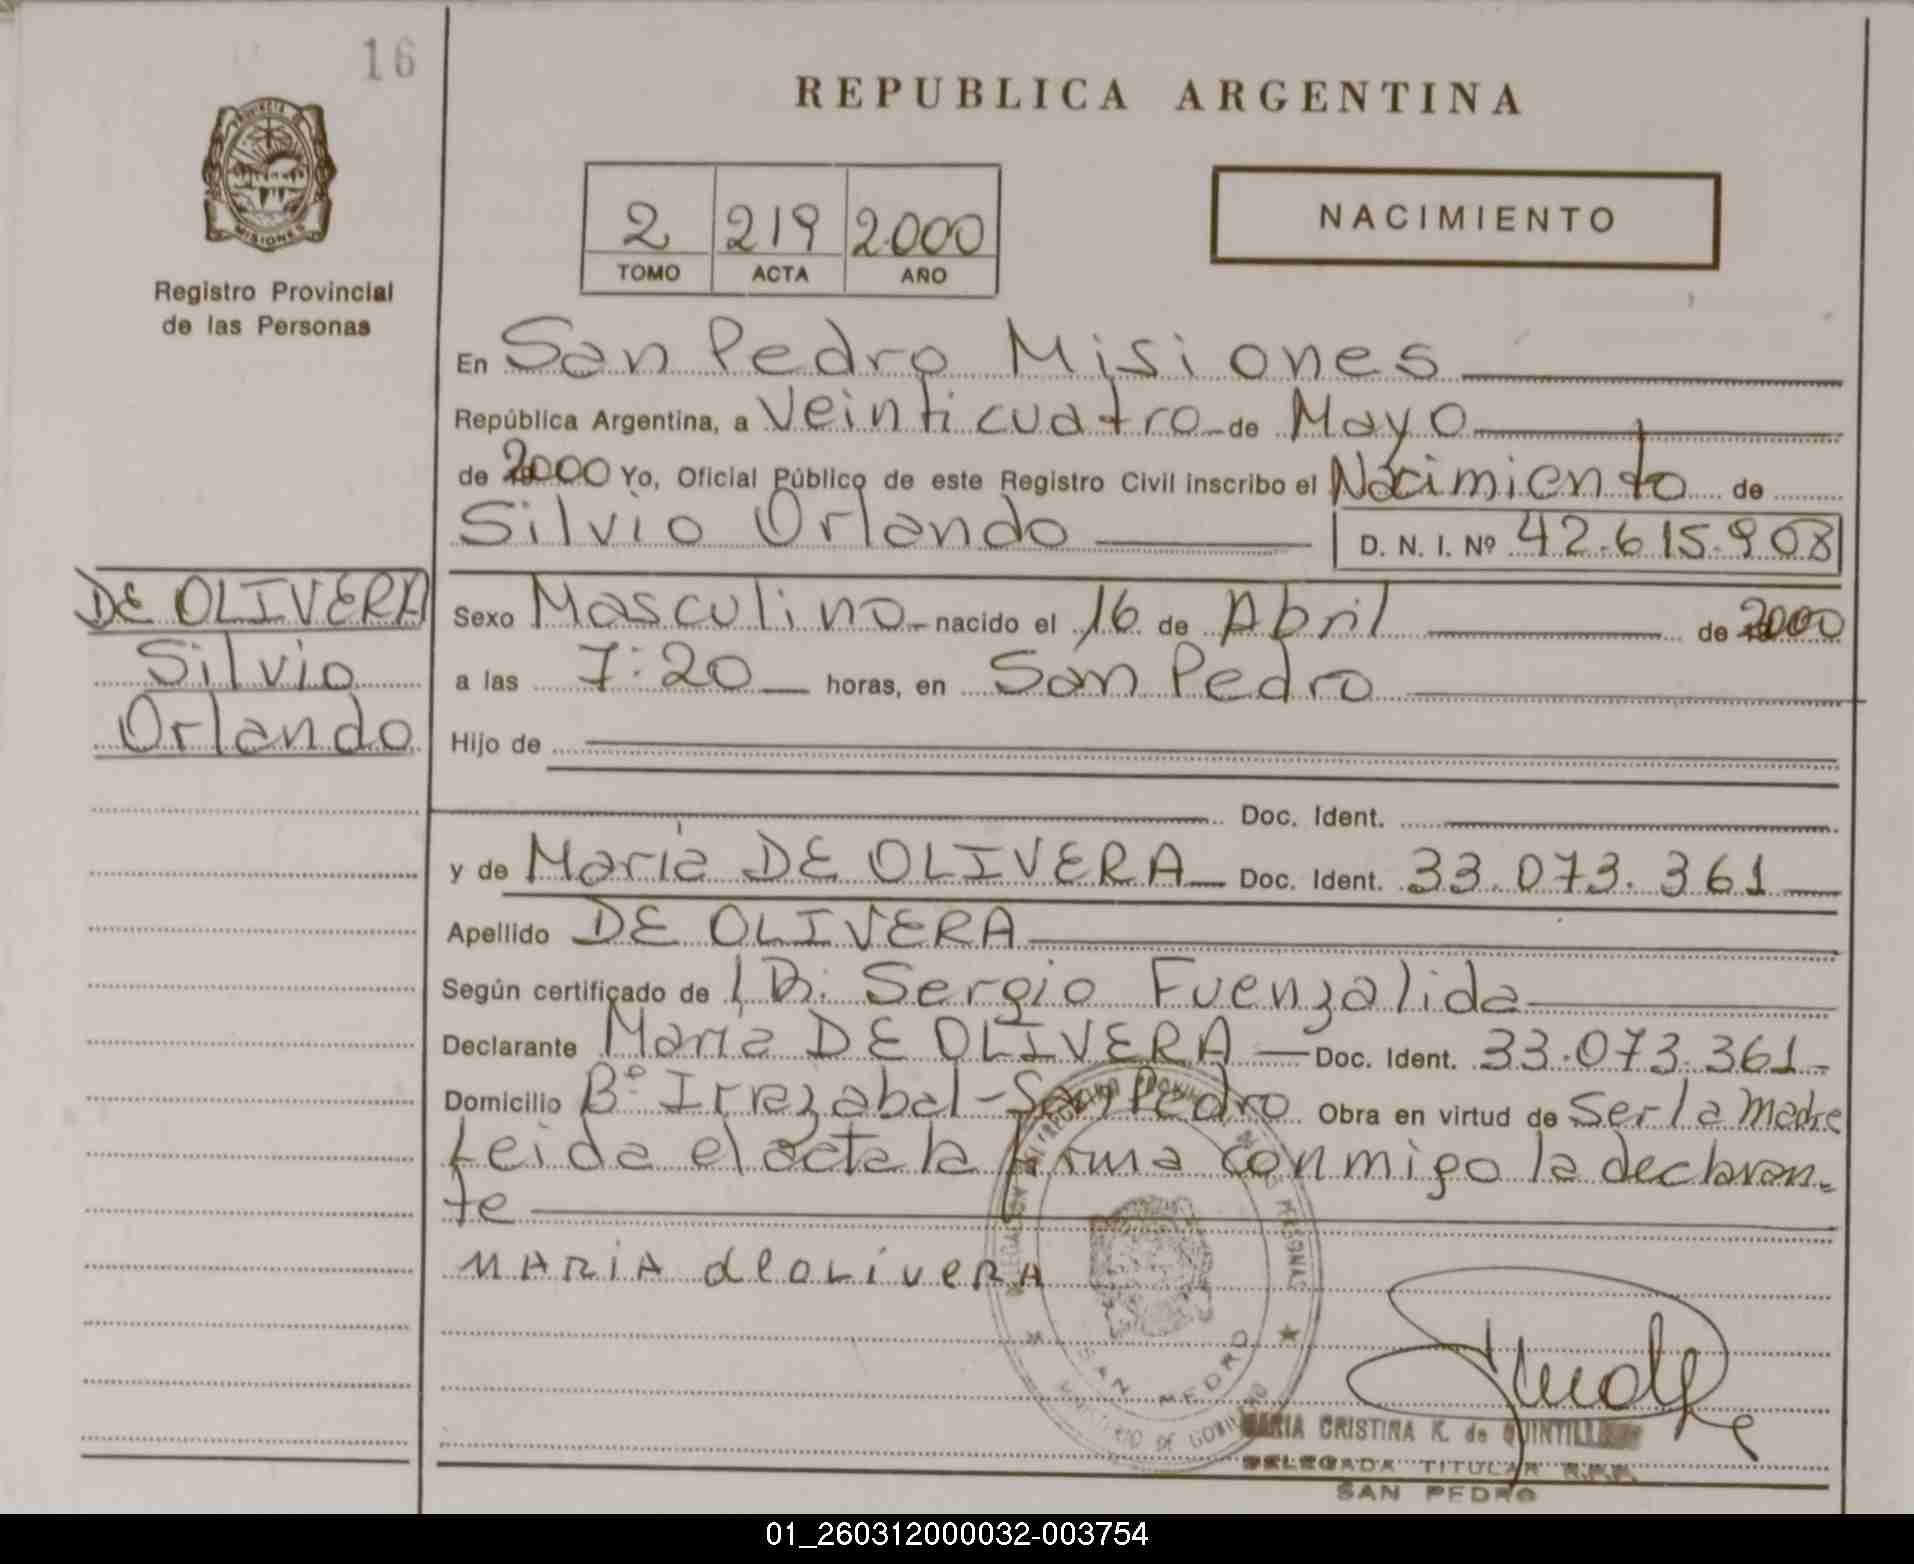 16
REPUBLICA ARGENTINA
PROVINCIA DE
MISIONES
Registro Provincial
de las Personas
2 219 2000
TOMO ACTA AÑO
NACIMIENTO
En San Pedro Misiones
República Argentina, a Veinticuatro de Mayo
de 2000 Yo, Oficial Público de este Registro Civil inscribo el Nacimiento de
Silvio Orlando D. N. I. Nº 42.615.908
DE OLIVERA
Silvio
Orlando
Sexo Masculino nacido el 16 de Abril de 2000
a las 7:20 horas, en San Pedro
Hijo de
Doc. Ident.
y de María DE OLIVERA Doc. Ident. 33.073.361
Apellido DE OLIVERA
Según certificado de Dr. Sergio Fuenzalida
Declarante María DE OLIVERA Doc. Ident. 33.073.361
Domicilio Bº Irrazabal - San Pedro Obra en virtud de Ser la Madre
Leida el acta la firma conmigo la declaran-
te
MARIA deOLiveRA
SAN PEDRO
MINISTERIO DE GOBIERNO
MARIA CRISTINA K. de
DELEGADA TITULAR R.P.P.
SAN PEDRO
01_260312000032-003754